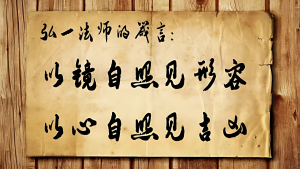 弘一法师的箴言：
以镜自照见形容
以心自照见吉凶